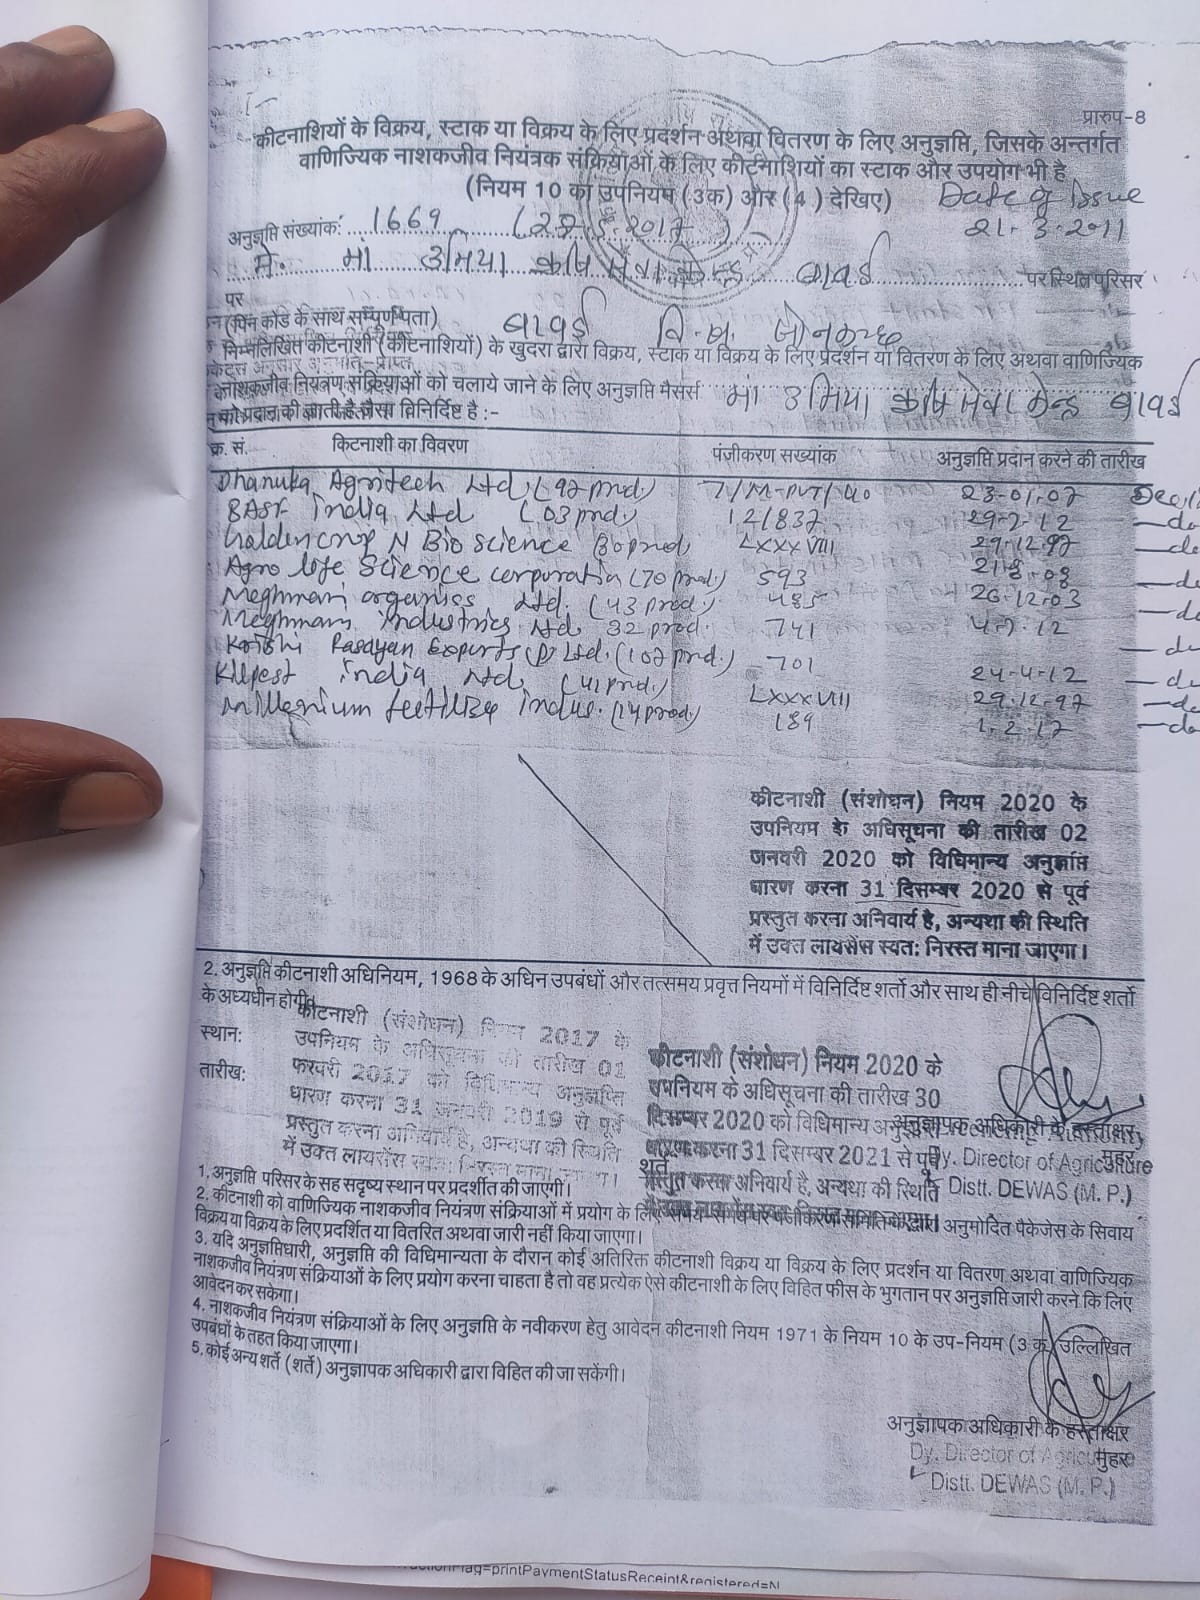 प्रारुप-8
कीटनाशियों के विक्रय, स्टाक या विक्रय के लिए प्रदर्शन अथवा वितरण के लिए अनुज्ञप्ति, जिसके अन्तर्गत
वाणिज्यिक नाशकजीव नियंत्रक संक्रियाओं के लिए कीटनाशियों का स्टाक और उपयोग भी है
(नियम 10 का उपनियम (3क) और (4) देखिए) Date of Issue
अनुज्ञप्ति संख्यांक: 1669 21.3.2011
मे. मां उमिया कृषि सेवा केन्द्र बावई पर स्थित परिसर
पर
(पिन कोड के साथ सम्पूर्ण पता) बावई वि.ख. सोनकच्छ
निम्नलिखित कीटनाशी (कीटनाशियों) के खुदरा द्वारा विक्रय, स्टाक या विक्रय के लिए प्रदर्शन या वितरण के लिए अथवा वाणिज्यिक
नाशकजीव नियंत्रण संक्रियाओं को चलाये जाने के लिए अनुज्ञप्ति मैसर्स मां उमिया कृषि सेवा केन्द्र बावई
को प्रदान की जाती है जैसा विनिर्दिष्ट है :-
क्र. सं. किटनाशी का विवरण पंजीकरण सख्यांक अनुज्ञप्ति प्रदान करने की तारीख
Dhanuka Agritech Ltd. (92 prod.) 23-01-07
BASF India Ltd (03 prd.) 12/837 29-2-12
N Bio Science LXXXVIII 29.12.97
Agro life Science corporation (70 prod.) 593 21.8.08
Meghmani organics Ltd. (43 prod.) 485 26.12.03
Meghmani Industries Ltd. 32 prod. 741 4.7.12
Krishi Rasayan Exports (P) Ltd. (107 prd.) 701 24-4-12
Killpest India Ltd. (41 prd.) LXXXVIII 29.12.97
Millenium fertilize Indus. (14 prod) 189 1.2.17
कीटनाशी (संशोधन) नियम 2020 के
उपनियम के अधिसूचना की तारीख 02
जनवरी 2020 को विधिमान्य अनुज्ञप्ति
धारण करना 31 दिसम्बर 2020 से पूर्व
प्रस्तुत करना अनिवार्य है, अन्यथा की स्थिति
में उक्त लायसेंस स्वत: निरस्त माना जाएगा।
2. अनुज्ञप्ति कीटनाशी अधिनियम, 1968 के अधिन उपबंधों और तत्समय प्रवृत्त नियमों में विनिर्दिष्ट शर्तो और साथ ही नीचे विनिर्दिष्ट शर्तो
के अध्यधीन होगी।
स्थान:
तारीख:
कीटनाशी (संशोधन) नियम 2017 के
उपनियम के अधिसूचना की तारीख 01
फरवरी 2017 को विधिमान्य अनुज्ञप्ति
धारण करना 31 जनवरी 2019 से पूर्व
प्रस्तुत करना अनिवार्य है, अन्यथा की स्थिति
में उक्त लायसेंस स्वत: निरस्त माना जाएगा।
कीटनाशी (संशोधन) नियम 2020 के
उपनियम के अधिसूचना की तारीख 30
दिसम्बर 2020 को विधिमान्य
धारण करना 31 दिसम्बर 2021 से पूर्व
प्रस्तुत करना अनिवार्य है, अन्यथा की स्थिति
अनुज्ञापक अधिकारी के हस्ताक्षर
मुहर
Dy. Director of Agriculture
Distt. DEWAS (M. P.)
शर्ते
1. अनुज्ञप्ति परिसर के सह सदृष्य स्थान पर प्रदर्शीत की जाएगी।
2. कीटनाशी को वाणिज्यिक नाशकजीव नियंत्रण संक्रियाओं में प्रयोग के लिए समय-समय पर पंजीकरण समिति के द्वारा अनुमोदित पैकेजेस के सिवाय
विक्रय या विक्रय के लिए प्रदर्शित या वितरित अथवा जारी नहीं किया जाएगा।
3. यदि अनुज्ञप्तिधारी, अनुज्ञप्ति की विधिमान्यता के दौरान कोई अतिरिक्त कीटनाशी विक्रय या विक्रय के लिए प्रदर्शन या वितरण अथवा वाणिज्यिक
नाशकजीव नियंत्रण संक्रियाओं के लिए प्रयोग करना चाहता है तो वह प्रत्येक ऐसे कीटनाशी के लिए विहित फीस के भुगतान पर अनुज्ञप्ति जारी करने कि लिए
आवेदन कर सकेगा।
4. नाशकजीव नियंत्रण संक्रियाओं के लिए अनुज्ञप्ति के नवीकरण हेतु आवेदन कीटनाशी नियम 1971 के नियम 10 के उप-नियम (3 क) उल्लिखित
उपबंधों के तहत किया जाएगा।
5. कोई अन्य शर्ते (शर्ते) अनुज्ञापक अधिकारी द्वारा विहित की जा सकेंगी।
अनुज्ञापक अधिकारी के हस्ताक्षर
मुहर
Dy. Director of Agriculture
Distt. DEWAS (M. P.)
=printPaymentStatusReceipt&registered=N